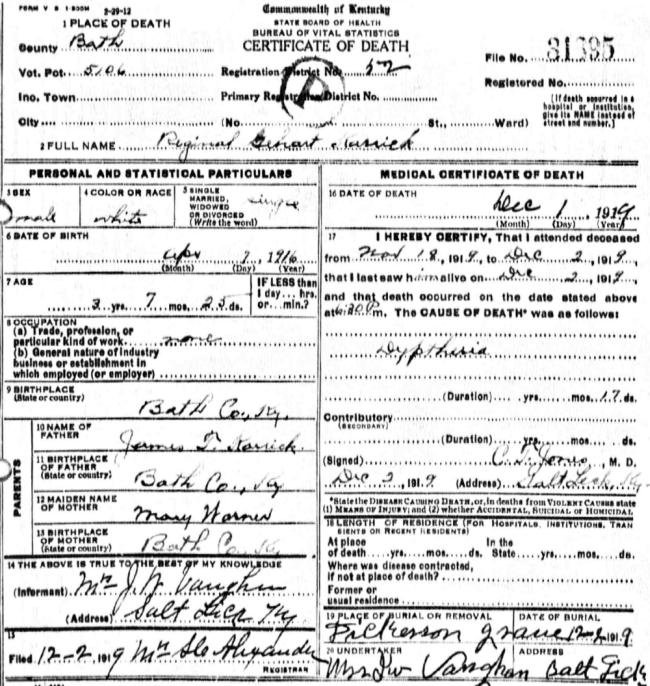 FORM V S 1-500M 2-29-12
Commonwealth of Kentucky
STATE BOARD OF HEALTH
BUREAU OF VITAL STATISTICS
CERTIFICATE OF DEATH
1 PLACE OF DEATH
County Bath
Vot. Pct. 5106
Inc. Town
City (No. St., Ward)
Registration District No. 52
Primary Registration District No.
File No. 31395
Registered No.
[If death occurred in a hospital or institution, give its NAME instead of street and number.]
2 FULL NAME Karrick
PERSONAL AND STATISTICAL PARTICULARS
3 SEX male
4 COLOR OR RACE white
5 SINGLE MARRIED, WIDOWED OR DIVORCED (Write the word) single
6 DATE OF BIRTH
Apr 7 1916
(Month) (Day) (Year)
7 AGE
3 yrs. 7 mos. 25 ds.
IF LESS than 1 day... hrs. or... min.?
8 OCCUPATION
(a) Trade, profession, or particular kind of work none
(b) General nature of industry business or establishment in which employed (or employer)
9 BIRTHPLACE
(State or country) Bath Co., Ky.
PARENTS
10 NAME OF FATHER James T. Karrick
11 BIRTHPLACE OF FATHER (State or country) Bath Co., Ky
12 MAIDEN NAME OF MOTHER Mary Warner
13 BIRTHPLACE OF MOTHER (State or country) Bath Co. Ky
14 THE ABOVE IS TRUE TO THE BEST OF MY KNOWLEDGE
(Informant) Mrs J. W. Vaughn
(Address) Salt Lick Ky
15
Filed 12-2, 1919 Mrs Alexander
REGISTRAR
MEDICAL CERTIFICATE OF DEATH
16 DATE OF DEATH Dec 1, 1919
(Month) (Day) (Year)
17 I HEREBY CERTIFY, That I attended deceased
from Nov 18, 1919, to Dec 2, 1919,
that I last saw him alive on Dec 2, 1919,
and that death occurred on the date stated above
at 6:30 P.m. The CAUSE OF DEATH* was as follows:
Dyptheria
(Duration) yrs. mos. 17 ds.
Contributory
(SECONDARY)
(Duration) yrs. mos. ds.
(Signed) C. T. Jones, M. D.
Dec 3, 1919 (Address) Salt Lick, Ky.
*State the DISEASE CAUSING DEATH, or, in deaths from VIOLENT CAUSES state
(1) MEANS OF INJURY; and (2) whether ACCIDENTAL, SUICIDAL or HOMICIDAL.
18 LENGTH OF RESIDENCE (FOR HOSPITALS, INSTITUTIONS, TRANSIENTS OR RECENT RESIDENTS)
At place of death yrs. mos. ds. In the State yrs. mos. ds.
Where was disease contracted, if not at place of death?
Former or usual residence
19 PLACE OF BURIAL OR REMOVAL
DATE OF BURIAL
grave 12-2 1919
20 UNDERTAKER
ADDRESS
Mrs J W Vaughan Salt Lick